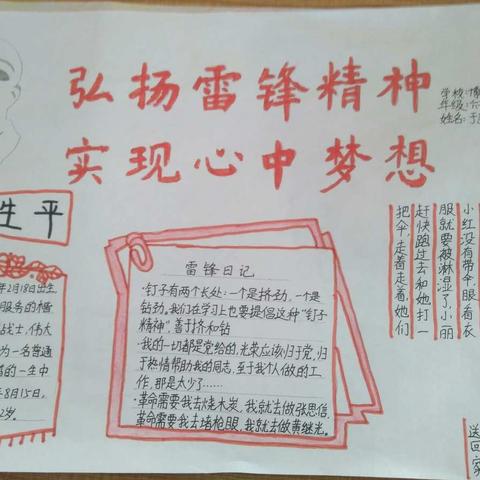 弘扬雷锋精神
实现心中梦想
学校:博
年级:六
姓名:于
生平
年2月18日出生
服务的楷
战士,伟大
为一名普通
的一生中
年8月15日,
2岁。
雷锋日记
·钉子有两个长处:一个是挤劲,一个是
钻劲。我们在学习上也要提倡这种“钉子
精神”,善于挤和钻
·我的一切都是党给的,光荣应该归于党,归
于热情帮助我的同志,至于我个人做的工
作,那是太少了……
·革命需要我去烧木炭,我就去做张思德,
革命需要我去堵枪眼,我就去做黄继光。
小红没有带伞,眼看衣
服就要被淋湿了,小丽
赶快跑过去和她打一
把伞,走着走着,她们
送
回家